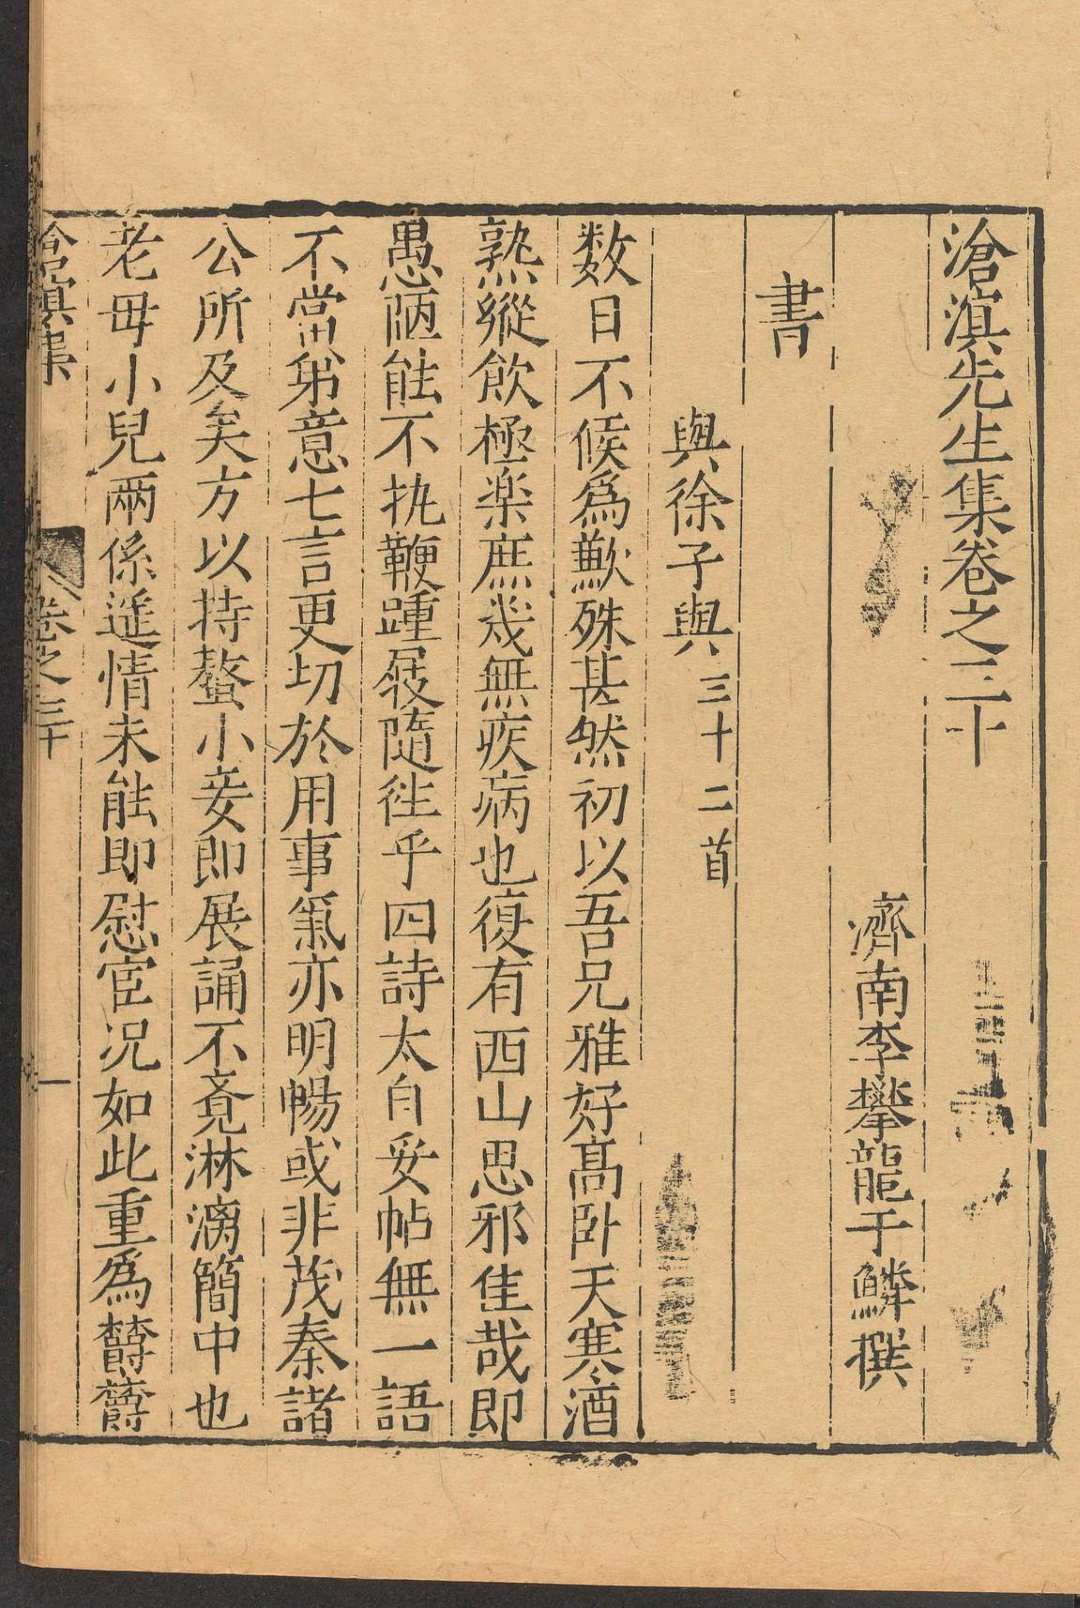 滄溟先生集卷之三十
濟南李攀龍于鱗撰
書
與徐子與三十二首
数日不候爲歉殊甚然初以吾兄雅好髙卧天寒酒
熟縱飲極楽庶幾無疾病也復有西山思邪佳哉即
愚陋能不執鞭踵屐隨徃乎四詩太自妥帖無一語
不當弟意七言更切於用事氣亦明暢或非茂秦諸
公所及矣方以持螯小妾即展誦不覔淋漓簡中也
老母小兒兩係遥情未能即慰宦况如此重爲欝欝
滄溟集
卷之三十
一